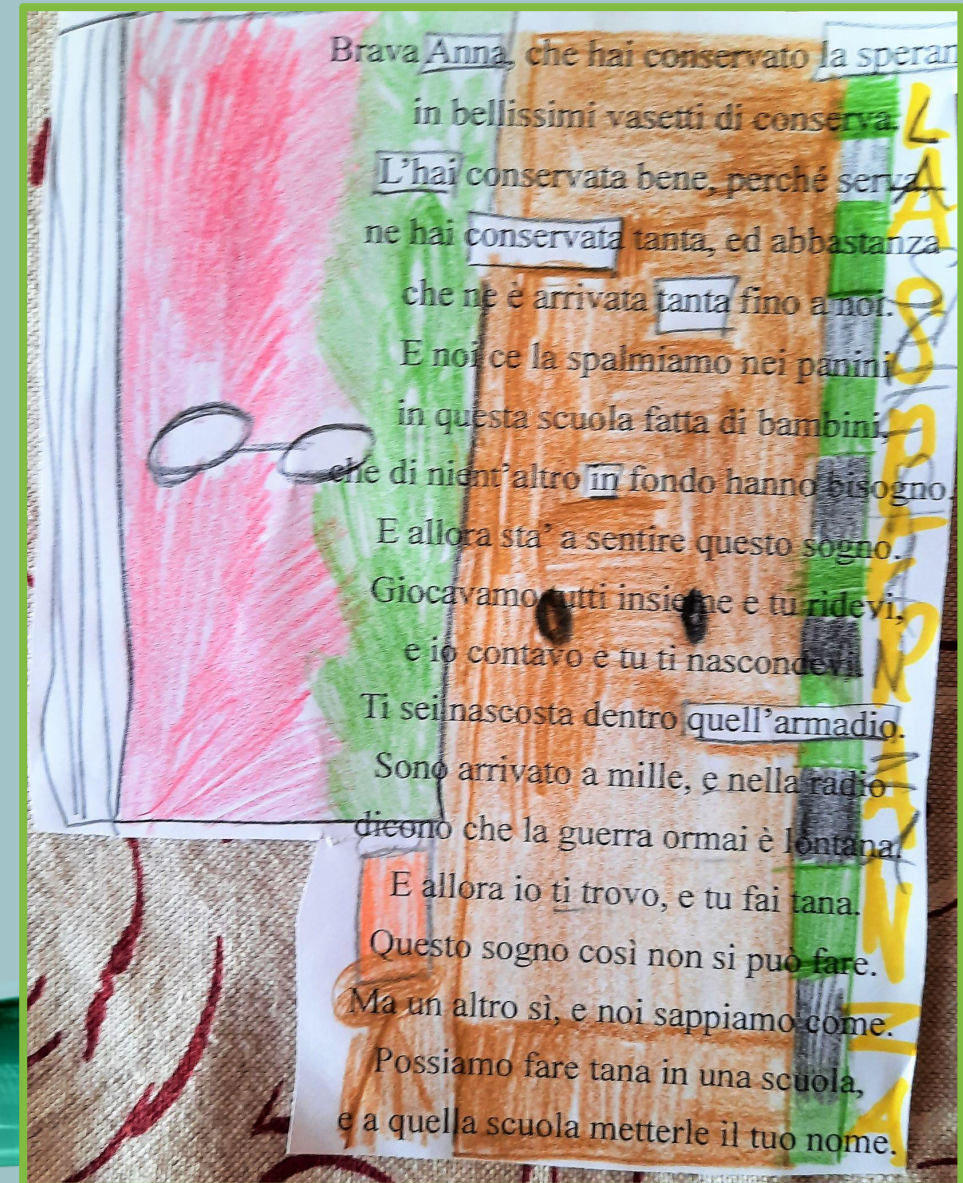 Brava Anna, che hai conservato la speran
in bellissimi vasetti di conserva.
L'hai conservata bene, perché serva,
ne hai conservata tanta, ed abbastanza
che ne è arrivata tanta fino a noi.
E noi ce la spalmiamo nei panini
in questa scuola fatta di bambini,
che di nient'altro in fondo hanno bisogno.
E allora sta' a sentire questo sogno.
Giocavamo tutti insieme e tu ridevi,
e io contavo e tu ti nascondevi.
Ti sei nascosta dentro quell'armadio.
Sono arrivato a mille, e nella radio
dicono che la guerra ormai è lontana.
E allora io ti trovo, e tu fai tana.
Questo sogno così non si può fare.
Ma un altro sì, e noi sappiamo come.
Possiamo fare tana in una scuola,
e a quella scuola metterle il tuo nome.
LA SPERANZA